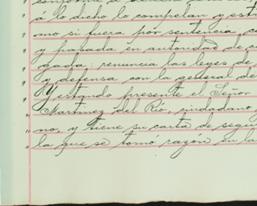 á lo dicho lo compelan y estre
mo si fuera por sentencia co
y pasada en autoridad de co
gada: renuncia las leyes de
y defensa con la general de
Y estando presente el Señor
Martinez del Río, ciudadano
no, y tiene su carta de segu
la que se tomo razón en la